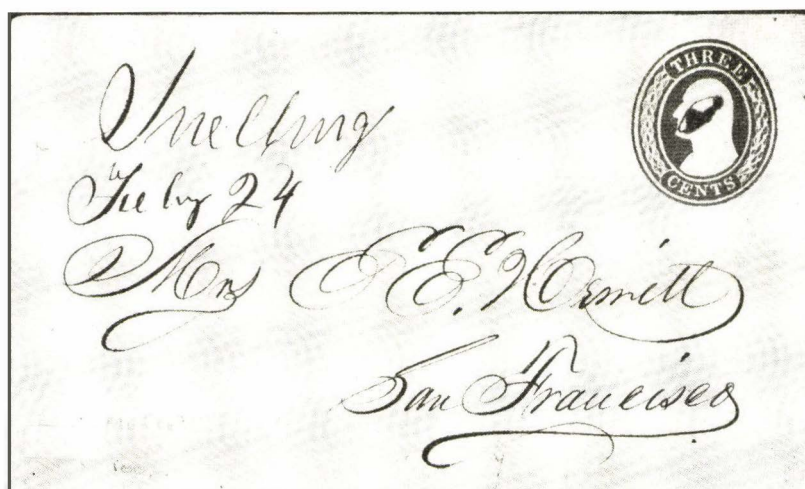 THREE
CENTS
Snelling
24
Mrs E.E. Hewitt
San Francisco